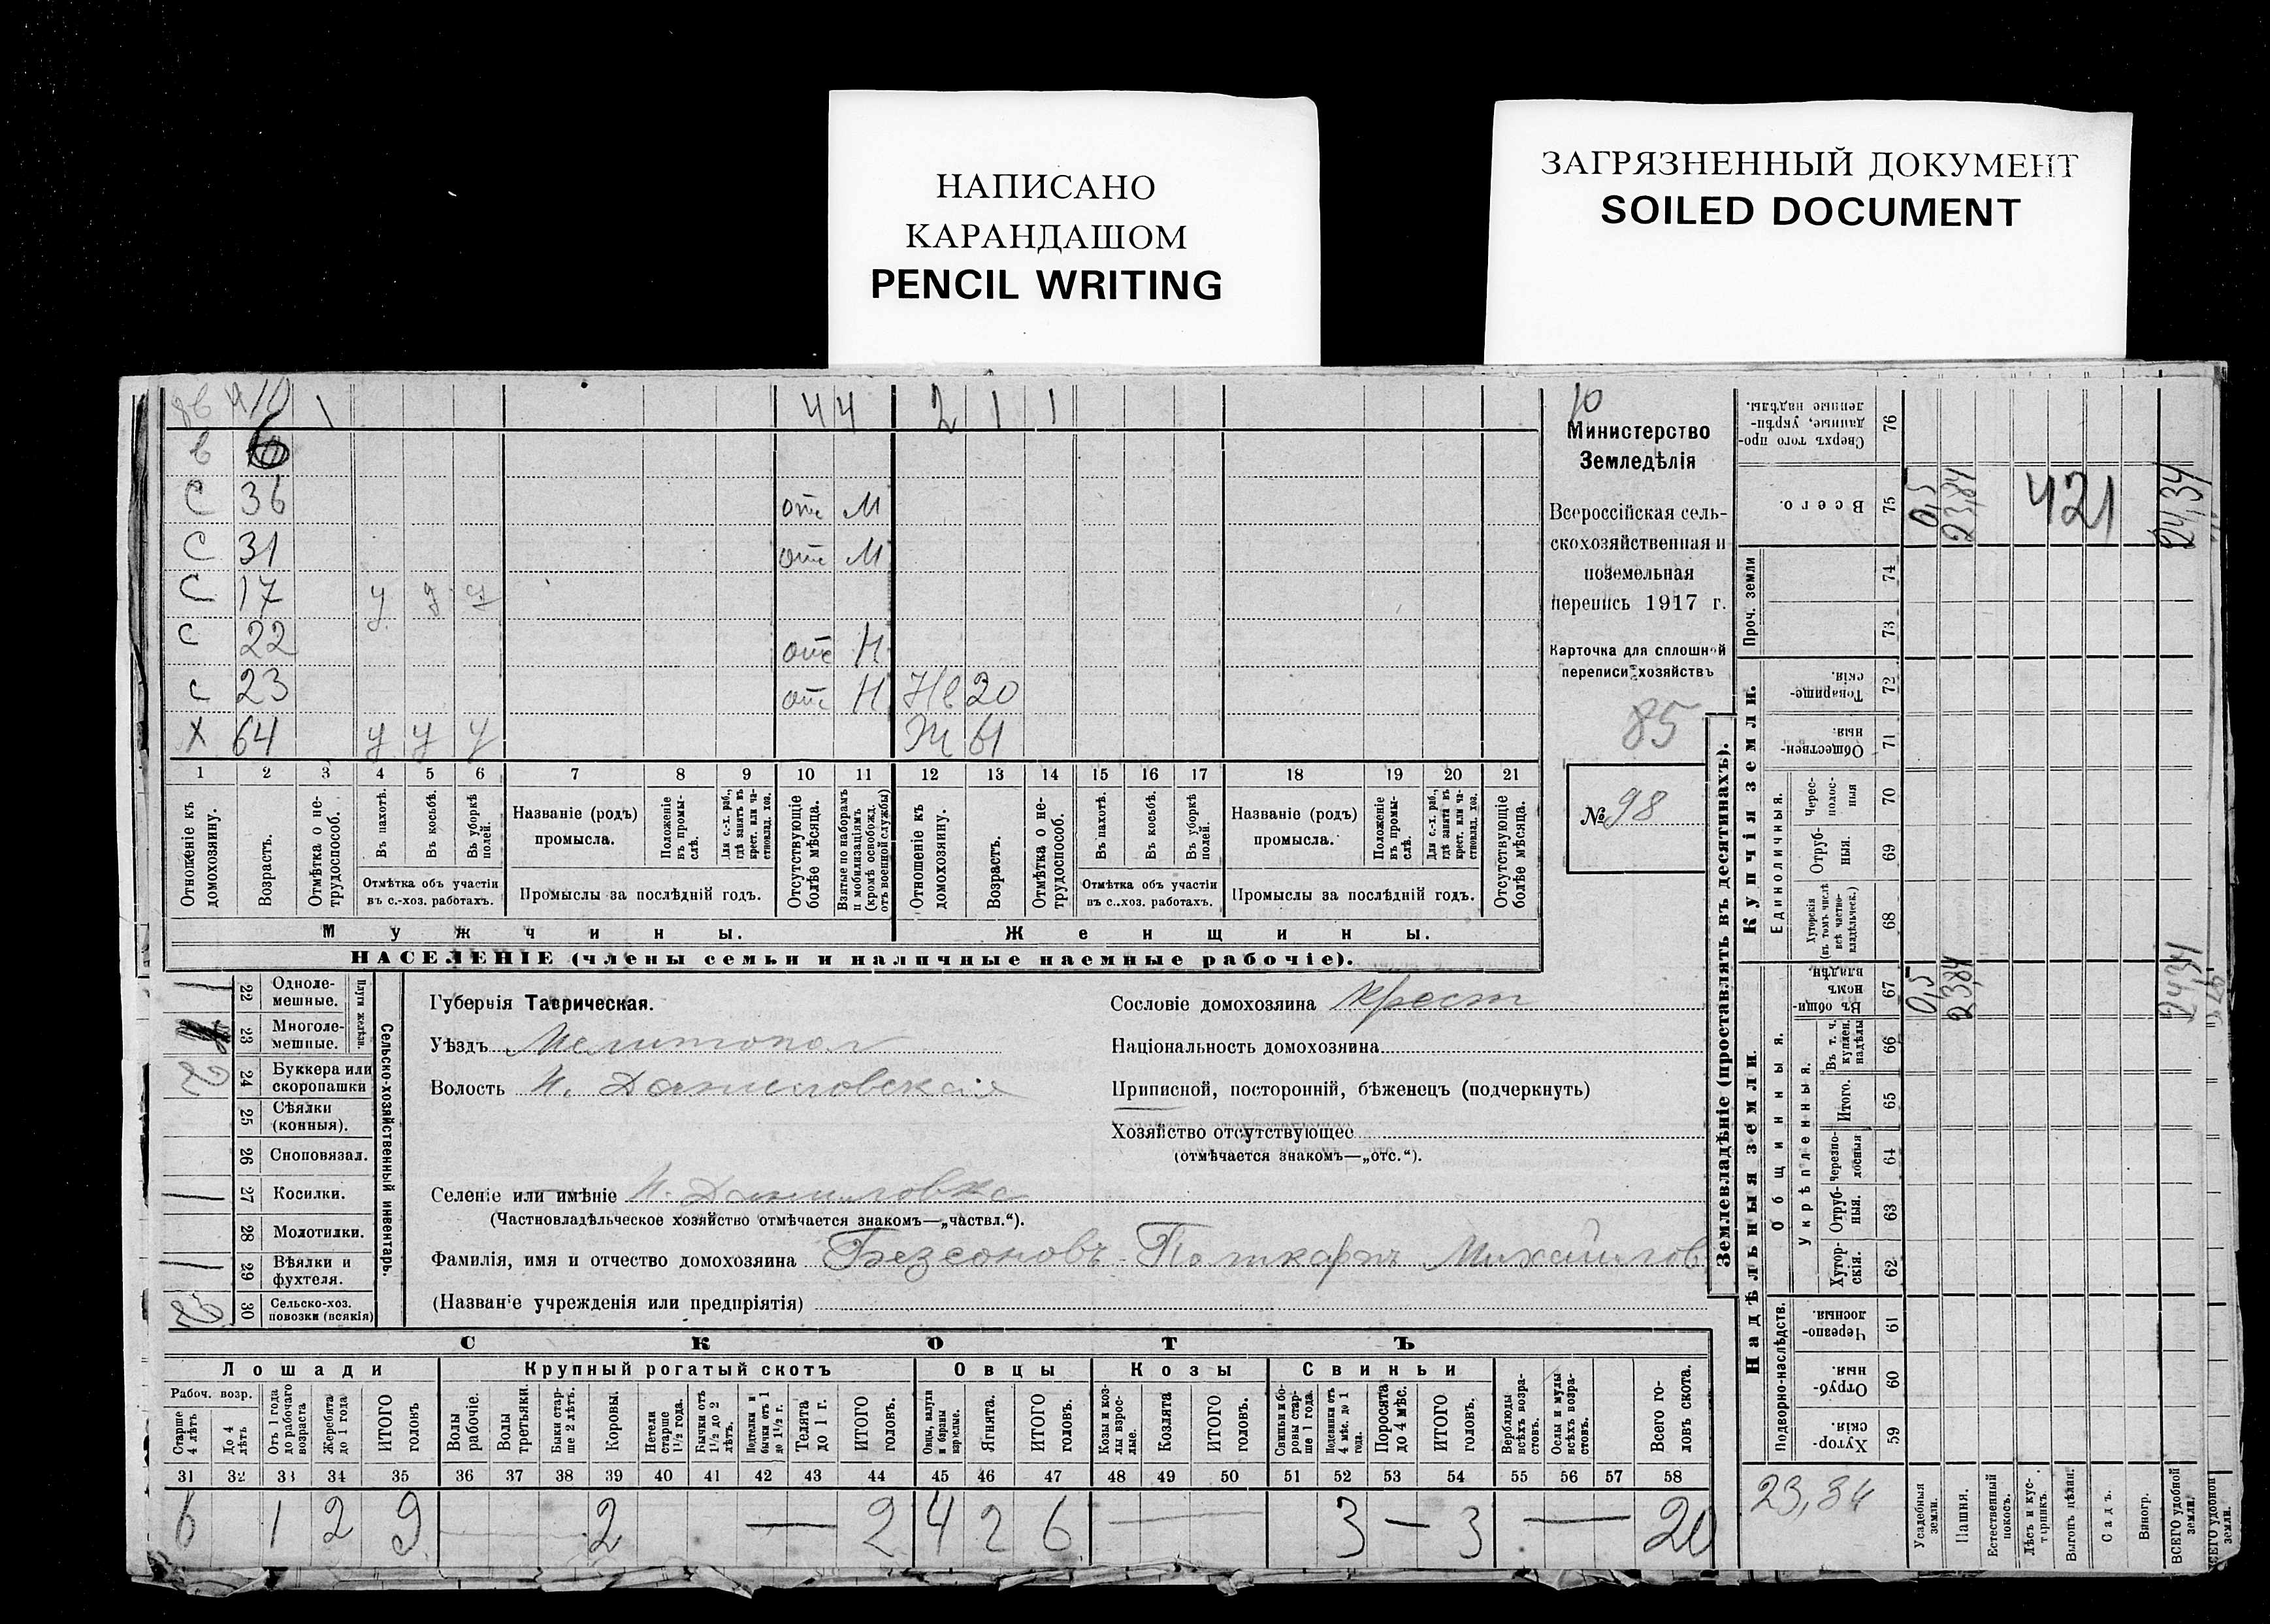 НАПИСАНО
КАРАНДАШОМ
PENCIL WRITING
ЗАГРЯЗНЕННЫЙ ДОКУМЕНТ
SOILED DOCUMENT
10 1 4 4 2 1 1
в 6
С 36 отс М
С 31 отс М
С 17 у у у
С 22 отс Н
с 23 отс Н Нв 20
Х 64 у у у Ж 61
1 2 3 4 5 6 7 8 9 10 11 12 13 14 15 16 17 18 19 20 21
Отношеніе къ домохозяину.
Возрастъ.
Отмѣтка о нетрудоспособ.
Въ пахотѣ.
Въ косьбѣ.
Въ уборкѣ полей.
Отмѣтка объ участіи въ с.-хоз. работахъ.
Названіе (родъ) промысла.
Положеніе въ промыслѣ.
Для с.-х. раб., гдѣ занятъ въ крест. или частновлад. хоз.
Промыслы за послѣдній годъ.
Отсутствующіе болѣе мѣсяца.
Взятые по наборамъ и мобилизаціямъ (кромѣ освобожд. отъ военной службы)
Отношеніе къ домохозяину.
Возрастъ.
Отмѣтка о нетрудоспособ.
Въ пахотѣ.
Въ косьбѣ.
Въ уборкѣ полей.
Отмѣтка объ участіи въ с.-хоз. работахъ.
Названіе (родъ) промысла.
Положеніе въ промыслѣ.
Для с.-х. раб., гдѣ занята въ крест. или частновлад. хоз.
Промыслы за послѣдній годъ.
Отсутствующіе болѣе мѣсяца.
Мужчины. Женщины.
НАСЕЛЕНІЕ (члены семьи и наличные наемные рабочіе).
10
Министерство
Земледѣлія
Всероссійская сель-
скохозяйственная и
поземельная
перепись 1917 г.
Карточка для сплошной
переписи хозяйствъ
85
№ 98
22 Одноле-мешные.
23 Многоле-мешные.
Плуги желѣзн.
2 24 Буккера или скоропашки
25 Сѣялки (конныя).
26 Сноповязал.
27 Косилки.
28 Молотилки.
29 Вѣялки и фухтеля.
2 30 Сельско-хоз. повозки (всякія)
Сельско-хозяйственный инвентарь.
Губернія Таврическая.
Уѣздъ Мелитопол
Волость Н. Даниловская
Селеніе или имѣніе Н. Даниловка
(Частновладѣльческое хозяйство отмѣчается знакомъ—„частвл.“).
Фамилія, имя и отчество домохозяина Безсоновъ Поликарпъ Михайлов
(Названіе учрежденія или предпріятія)
Сословіе домохозяина крест
Національность домохозяина
Приписной, посторонній, бѣженецъ (подчеркнуть)
Хозяйство отсутствующее
(отмѣчается знакомъ—„отс.“).
СКОТЪ
Лошади Крупный рогатый скотъ Овцы Козы Свиньи
Рабоч. возр.
Старше 4 лѣтъ
До 4 лѣтъ
Отъ 1 года до рабочаго возраста
Жеребята до 1 года
ИТОГО головъ
Волы рабочіе.
Волы третьяки.
Быки старше 2 лѣтъ.
Коровы.
Нетели старше 1½ года.
Бычки отъ 1½ до 2 лѣтъ.
Подтелки и бычки отъ 1 до 1½ г.
Телята до 1 г.
ИТОГО головъ.
Овцы, валухи и бараны взрослые.
Ягнята.
ИТОГО головъ.
Козы и козлы взрослые.
Козлята
ИТОГО головъ.
Свиньи и боровы старше 1 года.
Подсвинки отъ 4 мѣс. до 1 года.
Поросята до 4 мѣс.
ИТОГО головъ.
Верблюды всѣхъ возрастовъ.
Ослы и мулы всѣхъ возрастовъ.
Всего головъ скота.
31 32 33 34 35 36 37 38 39 40 41 42 43 44 45 46 47 48 49 50 51 52 53 54 55 56 57 58
6 1 2 9 2 — 2 4 2 6 — 3 — 3 — 20
Землевладѣніе (проставлять въ десятинахъ).
Купчія земли.
Надѣльныя земли.
76 Сверхъ того проданные, укрѣпленные надѣлы.
75 Всего. 0,5 23,84 421 24,34
Проч. земли 74 73
72 Товарищескія.
71 Общественныя.
Единоличныя.
70 Черезполосныя
69 Отрубныя.
68 Хуторскія (въ томъ числѣ всѣ частновладѣльческ.)
Общинныя.
67 Въ общинномъ владѣн. 0,5 23,84 24,34
Укрѣпленныя.
66 Въ т. ч. куплен. надѣлы
65 Итого.
64 Черезполосныя
63 Отрубныя.
62 Хуторскія.
Подворно-наслѣдств.
61 Черезполосныя.
60 Отрубныя.
59 Хуторскія.
23,84
Усадебныя земли.
Пашня.
Естественный покосъ.
Лѣсъ и кустарникъ.
Выгонъ цѣлин.
Садъ.
Виногр.
ВСЕГО удобной земли.
ВСЕГО удобной земли.